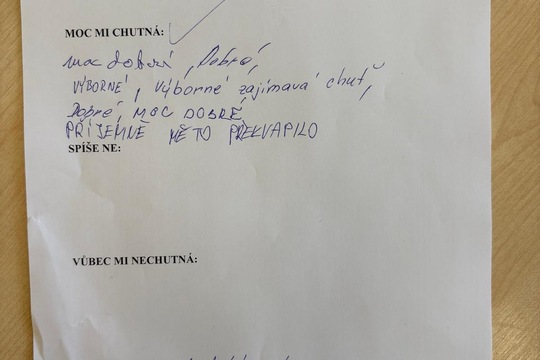 MOC MI CHUTNÁ:
moc dobré, Dobré,
VÝBORNÉ, výborné zajímavá chuť,
Dobré, MOC DOBRÉ,
PŘÍJEMNĚ MĚ TO PŘEKVAPILO
SPÍŠE NE:
VŮBEC MI NECHUTNÁ: